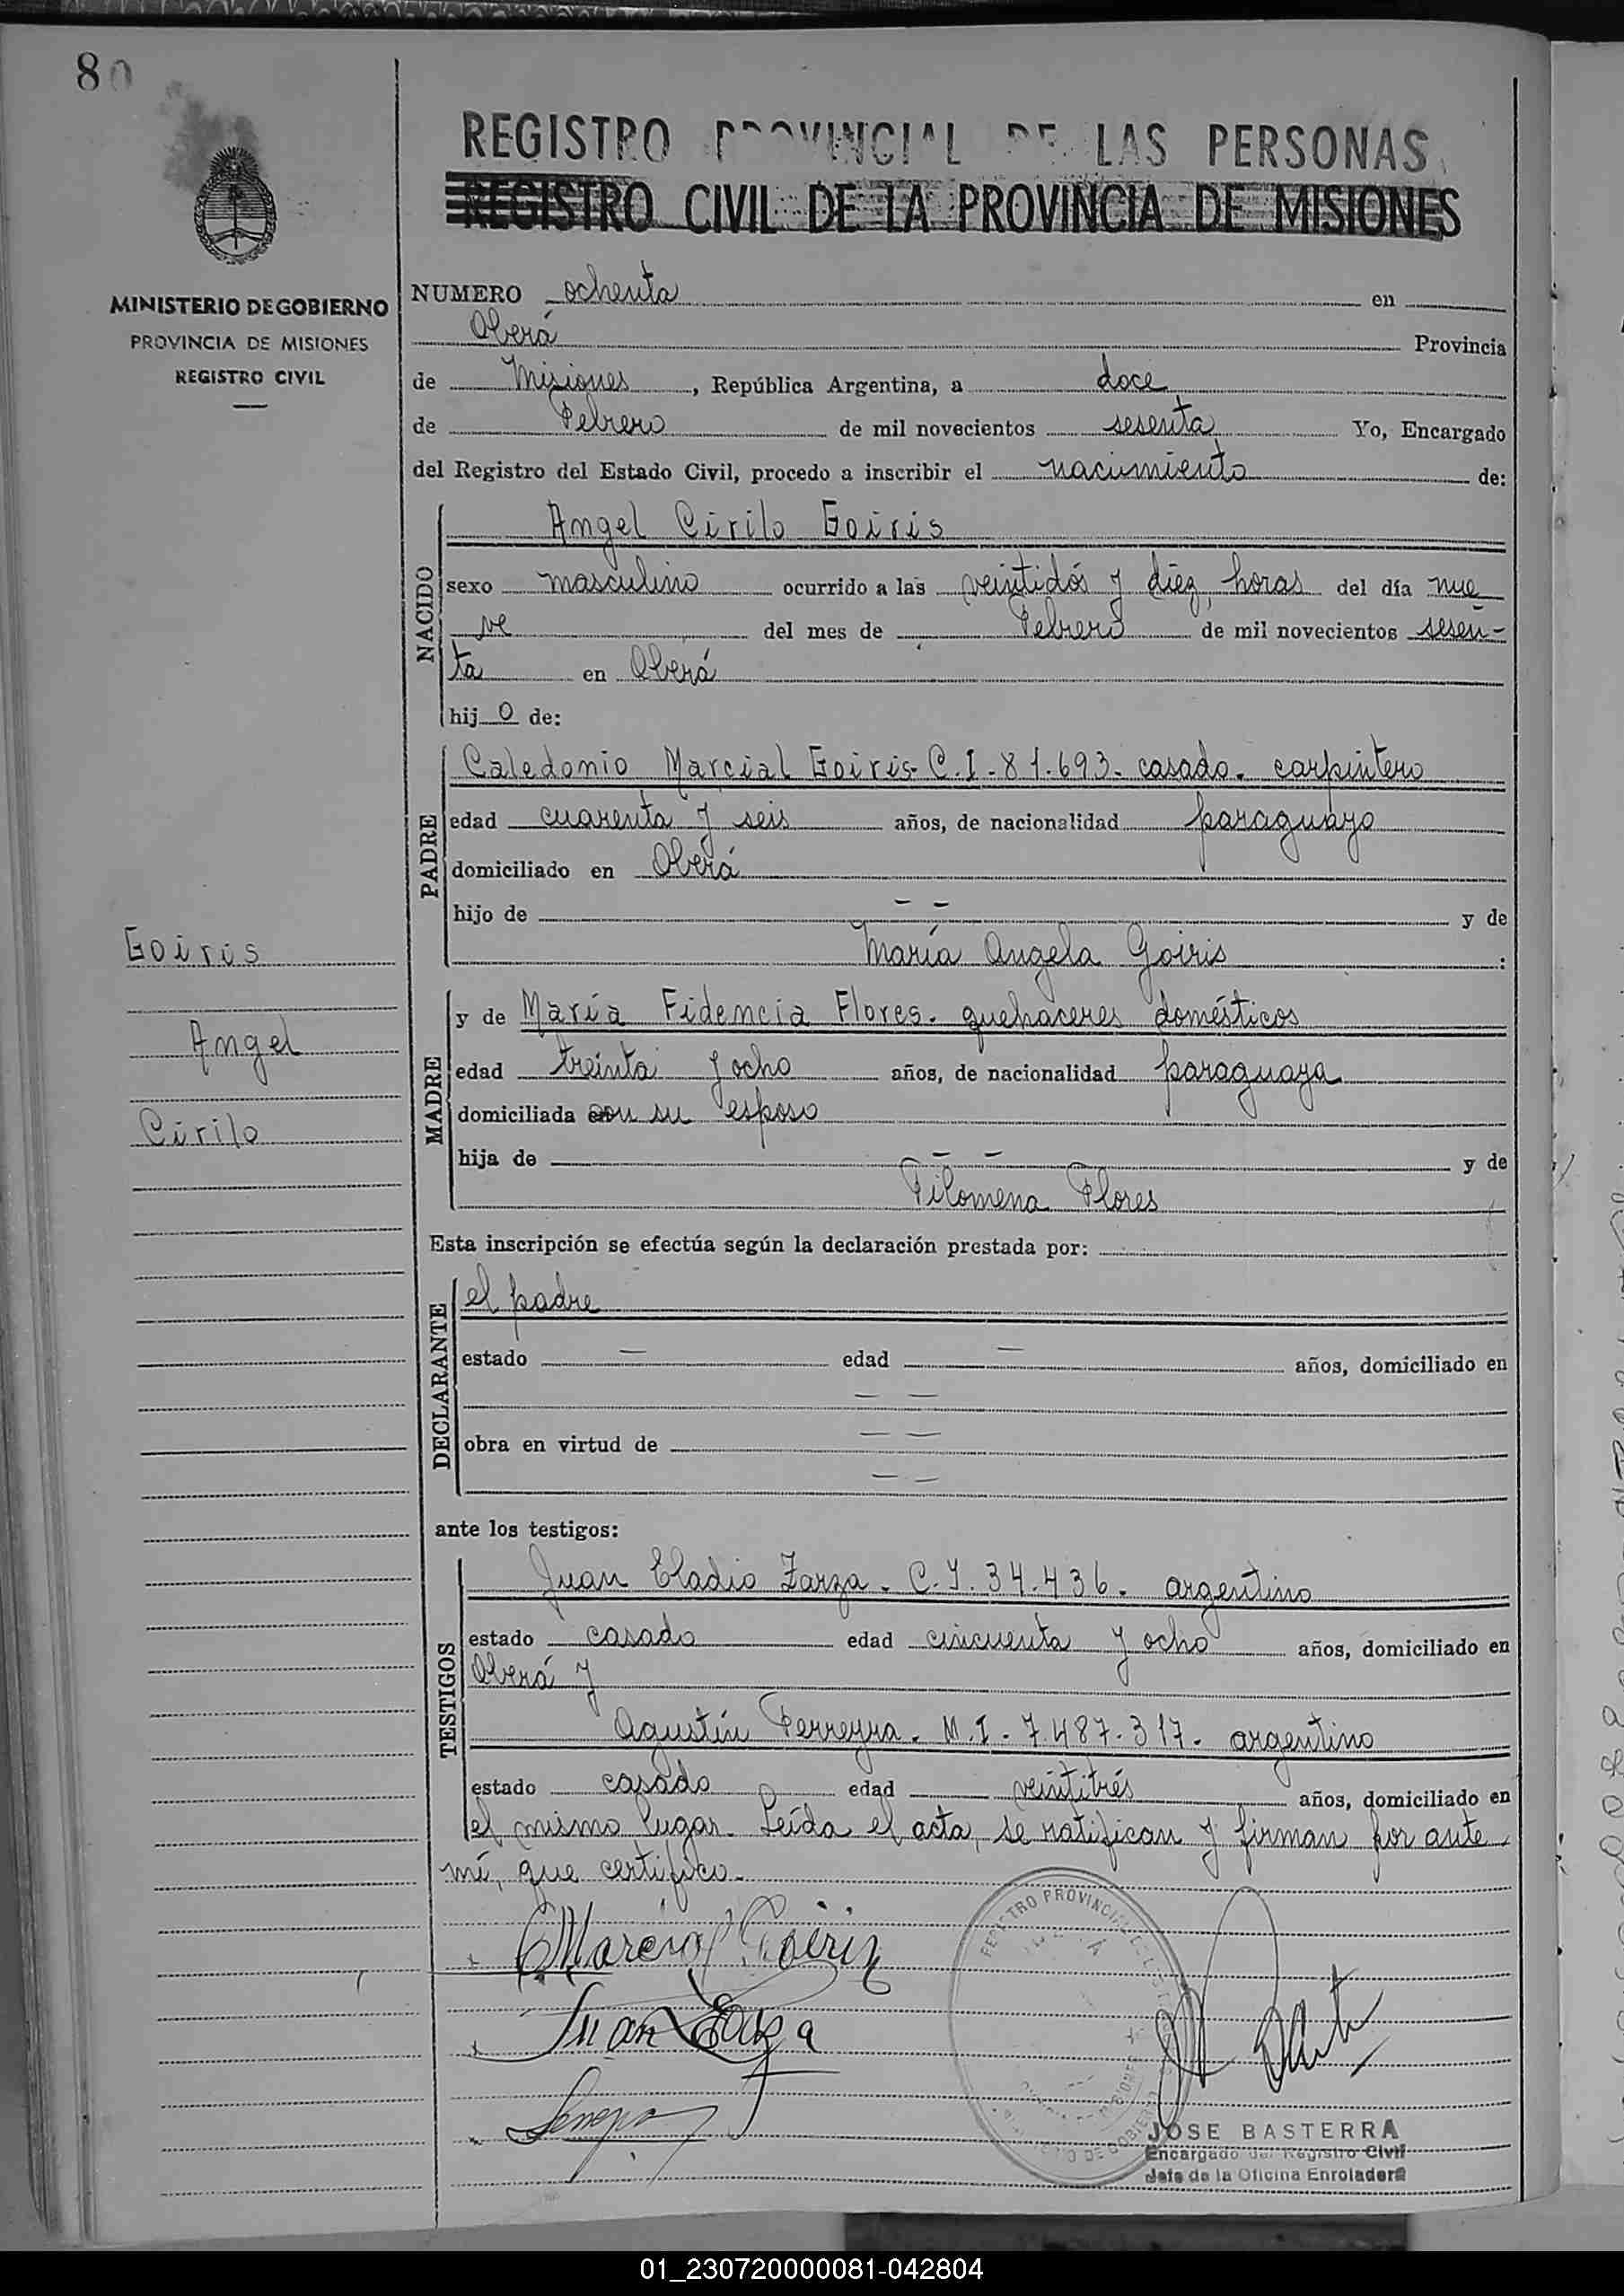 80
REGISTRO PROVINCIAL DE LAS PERSONAS
REGISTRO CIVIL DE LA PROVINCIA DE MISIONES
MINISTERIO DE GOBIERNO
PROVINCIA DE MISIONES
REGISTRO CIVIL
NUMERO ochenta en
Oberá Provincia
de Misiones, República Argentina, a doce
de Febrero de mil novecientos sesenta Yo, Encargado
del Registro del Estado Civil, procedo a inscribir el nacimiento de:
NACIDO
Angel Cirilo Goiris
sexo masculino ocurrido a las veintidós y diez horas del día nue
ve del mes de Febrero de mil novecientos sesen-
ta en Oberá
hijo de:
PADRE
Caledonio Marcial Goiris- C.I-81.693- casado- carpintero
edad cuarenta y seis años, de nacionalidad paraguayo
domiciliado en Oberá
hijo de - - y de
María Angela Goiris :
Goiris
Angel
Cirilo
MADRE
y de María Fidencia Flores- quehaceres domésticos
edad treinta y ocho años, de nacionalidad paraguaya
domiciliada con su esposo
hija de - - y de
Filomena Flores
Esta inscripción se efectúa según la declaración prestada por:
DECLARANTE
el padre
estado - edad - años, domiciliado en
- -
obra en virtud de - -
- -
ante los testigos:
TESTIGOS
Juan Eladio Zarza- C.I.34.436- argentino
estado casado edad cincuenta y ocho años, domiciliado en
Oberá y
Agustín Ferreyra- M.I-7.487.317- argentino
estado casado edad veintitrés años, domiciliado en
el mismo lugar. Leída el acta, se ratifican y firman por ante
mí, que certifico-
x Marcial Goiris
x Juan Zarza
REGISTRO PROVINCIAL
JOSE BASTERRA
Encargado del Registro Civil
Jefe de la Oficina Enroladora
01_230720000081-042804